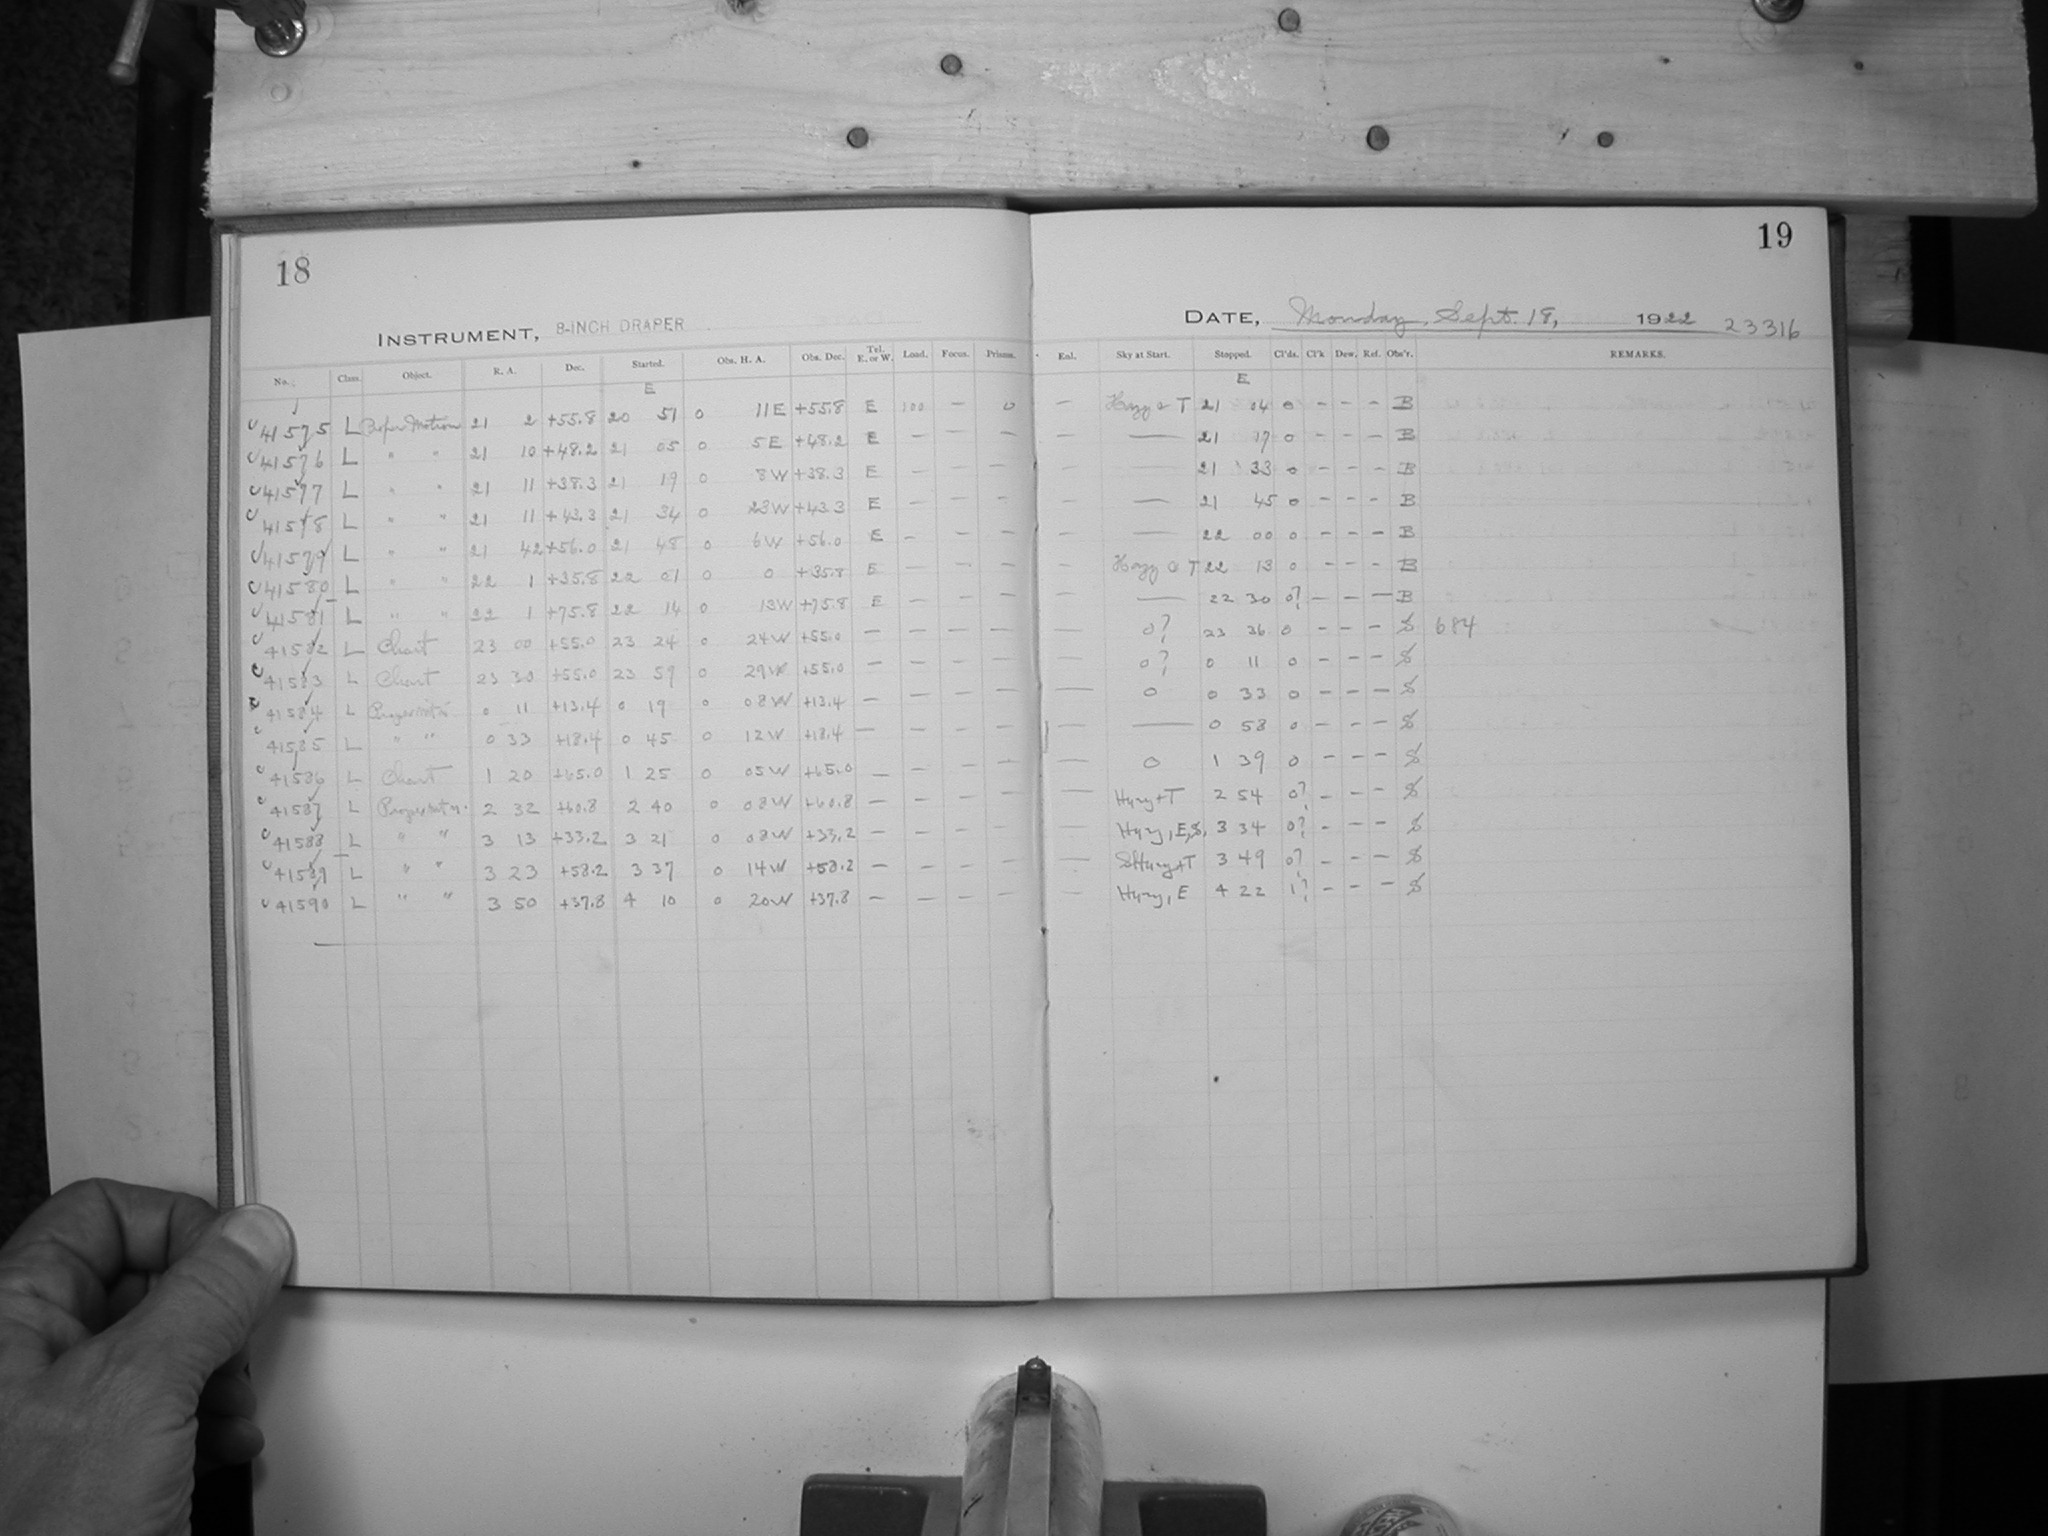 18
INSTRUMENT, 8-INCH DRAPER
No. Class. Object. R. A. Dec. Started. Obs. H. A. Obs. Dec. Tel. E. or W. Load. Focus. Prisms.
E
41575 L Proper Motion 21 2 +55.8 20 51 0 11E +55.8 E 100 — 0
41576 L " " 21 10 +48.2 21 05 0 5E +48.2 E — — —
41577 L " " 21 11 +38.3 21 19 0 8W +38.3 E — — —
41578 L " " 21 11 +43.3 21 34 0 23W +43.3 E — — —
41579 L " " 21 42 +56.0 21 48 0 6W +56.0 E — — —
41580 L " " 22 1 +35.8 22 01 0 0 +35.8 E — — —
41581 L " " 22 1 +75.8 22 14 0 13W +75.8 E — — —
41582 L Chart 23 00 +55.0 23 24 0 24W +55.0 — — — —
41583 L Chart 23 30 +55.0 23 59 0 29W +55.0 — — — —
41584 L 0 11 +13.4 0 19 0 08W +13.4 — — — —
41585 L " " 0 33 +18.4 0 45 0 12W +18.4 — — — —
41586 L Chart 1 20 +65.0 1 25 0 05W +65.0 — — — —
41587 L 2 32 +60.8 2 40 0 08W +60.8 — — — —
41588 L " " 3 13 +33.2 3 21 0 08W +33.2 — — — —
41589 L " " 3 23 +58.2 3 37 0 14W +58.2 — — — —
41590 L " " 3 50 +37.8 4 10 0 20W +37.8 — — — —
19
DATE, Monday, Sept. 18, 1922 23316
Enl. Sky at Start. Stopped. Cl'ds. Cl'k Dew. Ref. Obs'r. REMARKS.
E
— Hazy & T 21 04 0 — — — B
— — 21 17 0 — — — B
— — 21 33 0 — — — B
— — 21 45 0 — — — B
— — 22 00 0 — — — B
— Hazy & T 22 13 0 — — — B
— — 22 30 0? — — — B
— 0? 23 36 0 — — — S 684
— 0? 0 11 0 — — — S
— 0 0 33 0 — — — S
— — 0 58 0 — — — S
— 0 1 39 0 — — — S
— Hazy+T 2 54 0? — — — S
— Hazy, E,S, 3 34 0? — — — S
— SHazy+T 3 49 0? — — — S
— Hazy, E 4 22 1? — — — S